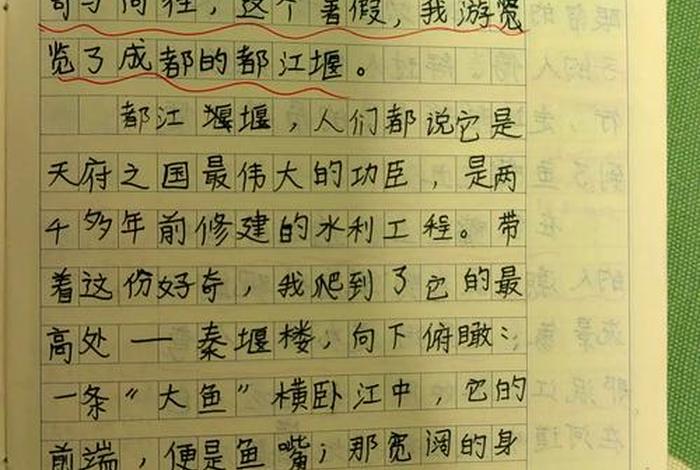 奇与向往，这个暑假，我游览
览了成都的都江堰。
都江堰堰，人们都说它是
天府之国最伟大的功臣，是两
千多年前修建的水利工程。带
着这份好奇，我爬到了它的最
高处一秦堰楼，向下俯瞰：
一条“大鱼”横卧江中，它的
前端，便是鱼嘴；那宽阔的身